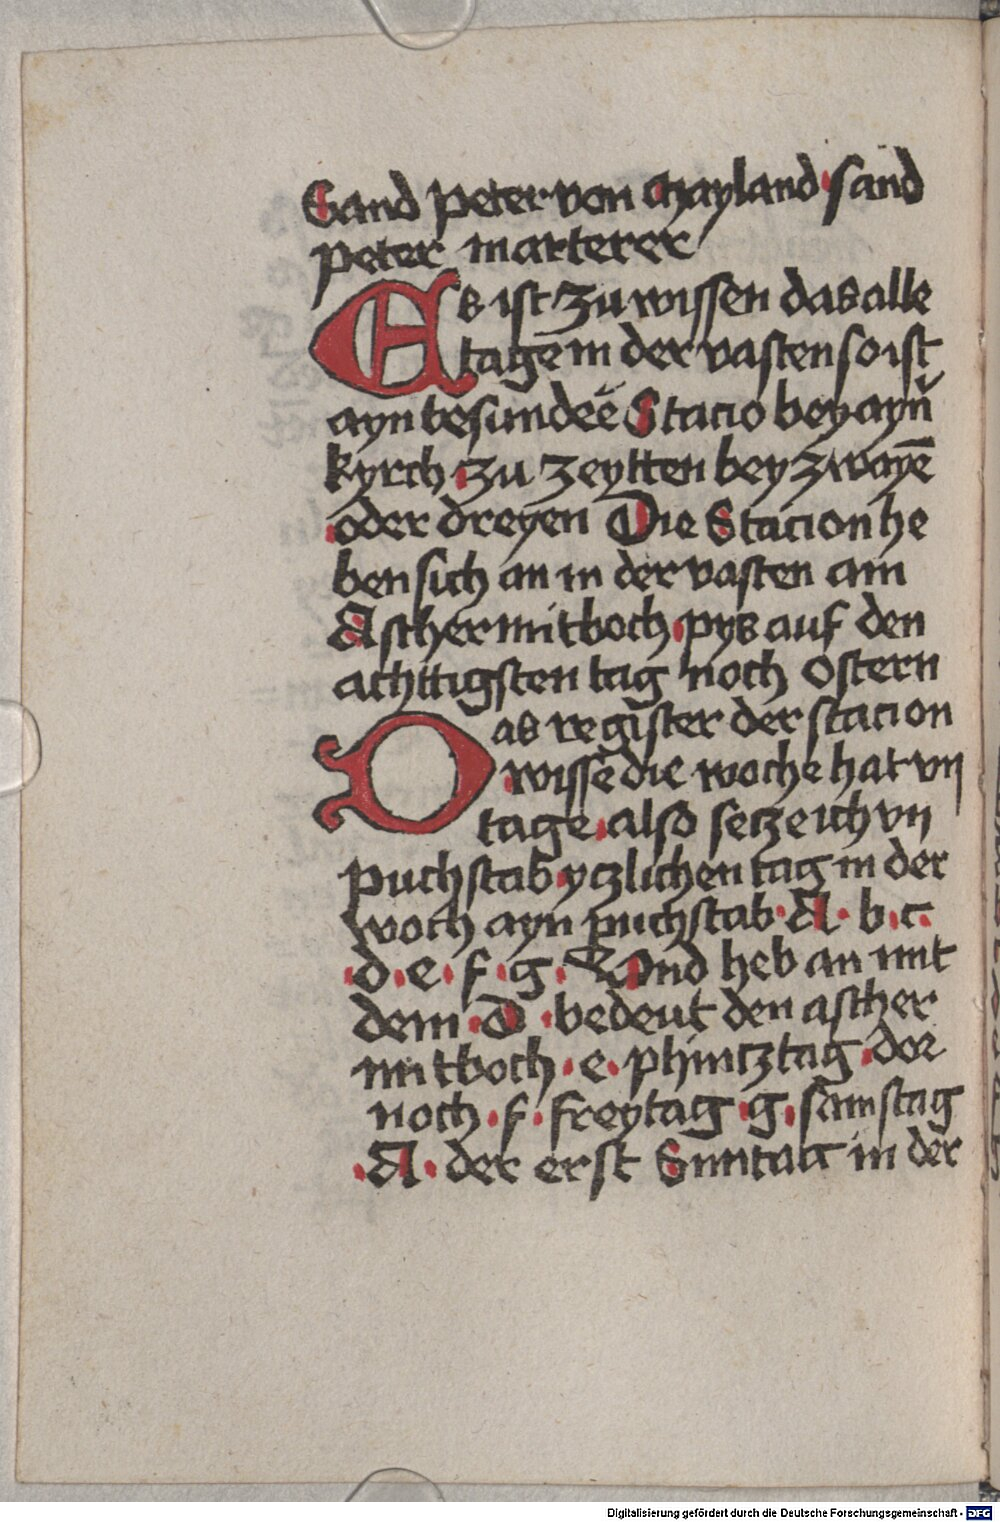 Sand Peter von Mayland sand
Peter marterer
Es ist zu wissen das alle
tage in der vasten so ist
ayn besundeē Stacio bey ayn̄
kyrch zu zeytten bey zwayē
oder dreyen Die Stacion he
ben sich an in der vasten am
Aschermitboch pys auf den
achttigsten tag noch Ostern
Das register der stacion
wisse die woche hat vij
tage also secze ich vij
puchstab yczlichen tag in der
woch ayn puchstab · A · b · c ·
· d · e · f · g · Vnd heb an mit
dem · D · bedeut den ascher
mitboch · e · phincztag dor
noch · f · freytag g · samstag
· A · der erst Suntag in der
Digitalisierung gefördert durch die Deutsche Forschungsgemeinschaft - DFG